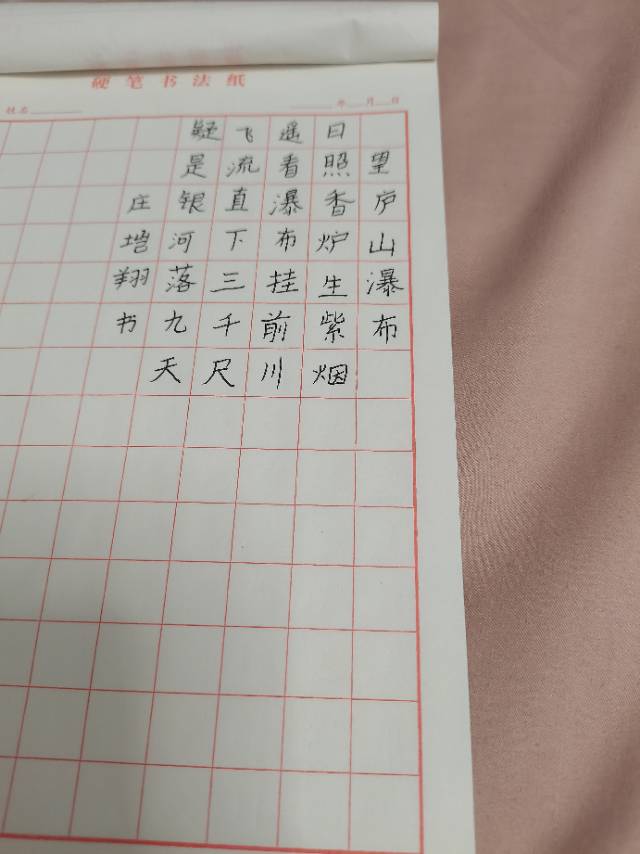 硬笔书法纸
姓名 年 月 日
望庐山瀑布
日照香炉生紫烟
遥看瀑布挂前川
飞流直下三千尺
疑是银河落九天
庄培翔书